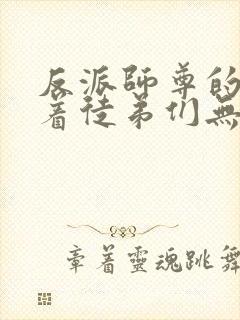 反派師尊的
着徒弟们無
章着靈魂跳舞